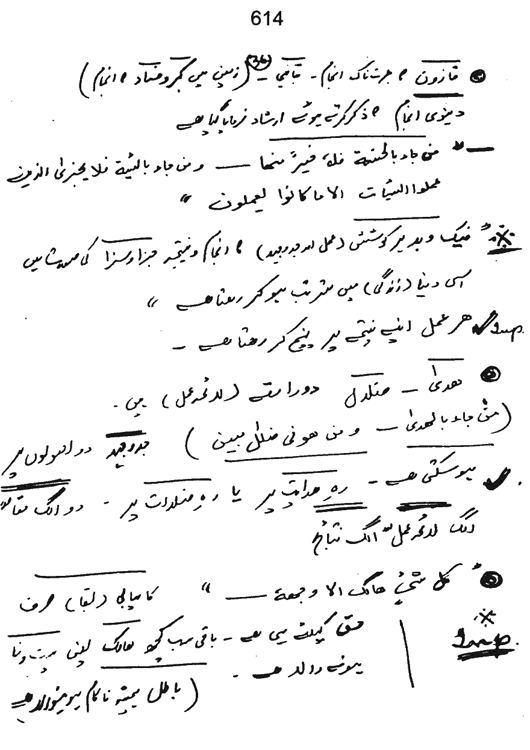 614
قارون کا عبرتناک انجام - (36) (زمین میں کبر و فساد کا انجام)
دنیوی انجام کا ذکر کرتے ہوئے ارشاد فرمایا گیا ہے
" من جاء بالحسنة فلہ خیرٌ منھا — و من جاء بالسیئة فلا یجزی الذین
عملوا السیئات الا ما کانوا یعملون "
نیک و بد ہر کوشش (عمل اور جدوجہد) کا انجام و نتیجہ جزا و سزا کی
اسی دنیا (زندگی) میں مرتب ہو کر رہتا ہے "
Imp. ہر عمل اپنے نتیجے پر پہنچ کر رہتا ہے -
ھدیٰ - ضلٰل دو راستے (لائحہ عمل) ہیں -
(من جاء بالھدیٰ — و من ھو فی ضلٰل مبین) جدوجہد دو اصولوں پر
ہو سکتی ہے - رہِ ھدایت پر یا رہِ ضلالت پر - دو الگ
الگ لائحہ عمل " الگ نتائج
کل شئٍ ھالک الا وجھہ — " کامیابی (بقا) صرف
Imp. حق کیلئے ہی ہے - باقی سب کچھ ھالک یعنی
ہونے والا ہے -
(باطل ہمیشہ ناکام ہونیوالا ہے